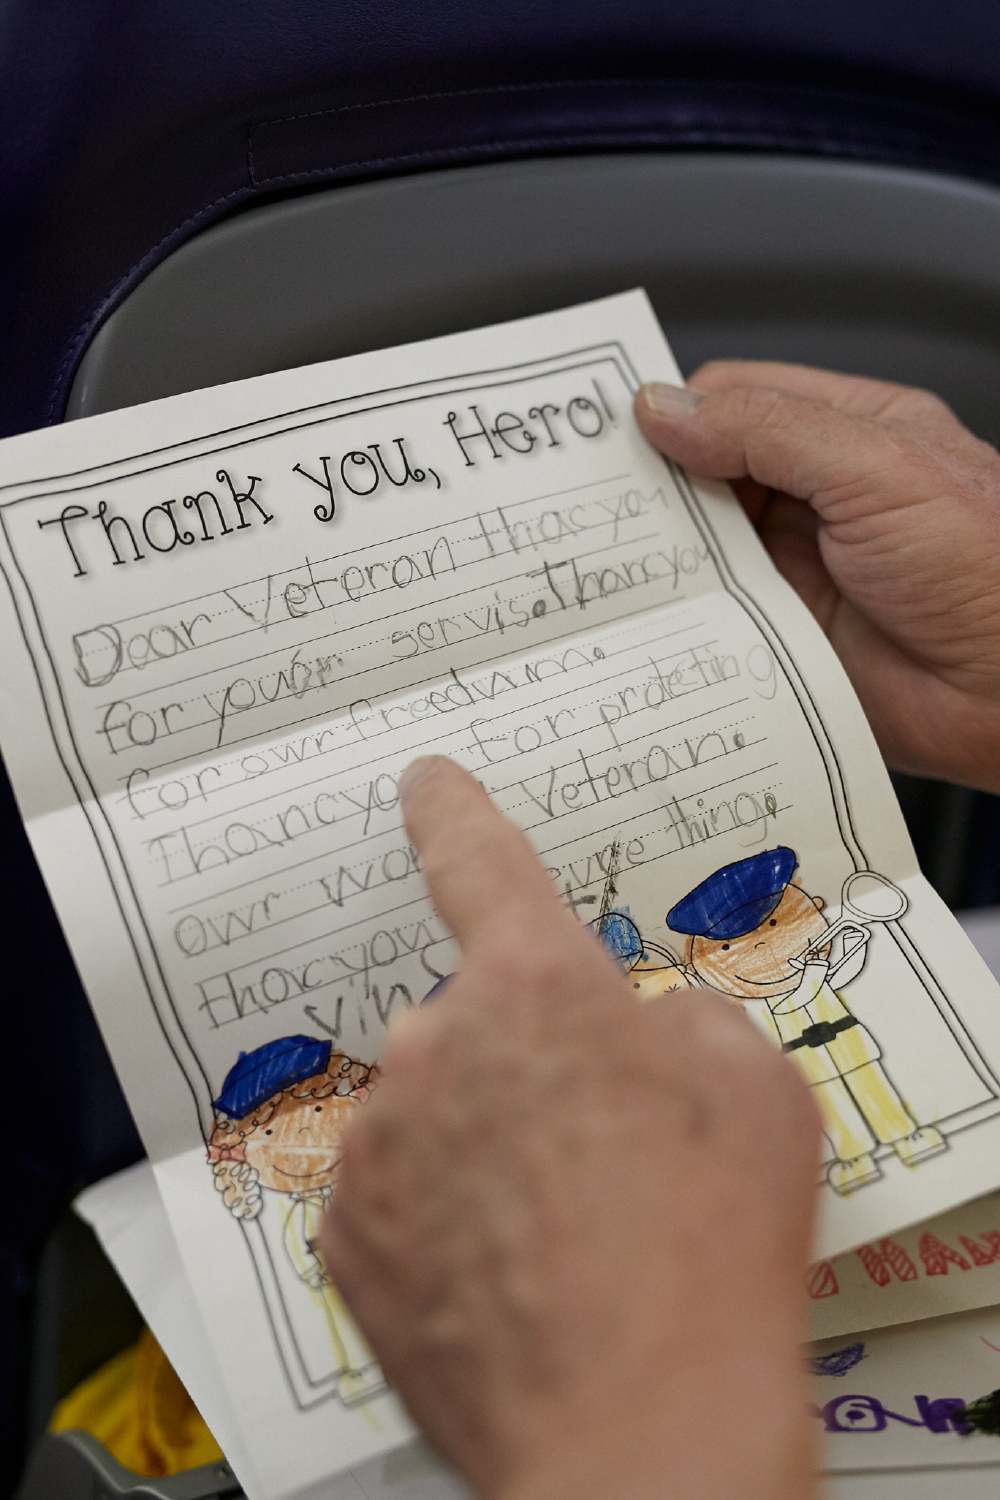 Thank you, Hero!
Dear Veteran thac you
for your servise. Thancyou
for owr freedum.
Thancyou for protecting
owr Veteran.
thacyou thing.
HAN